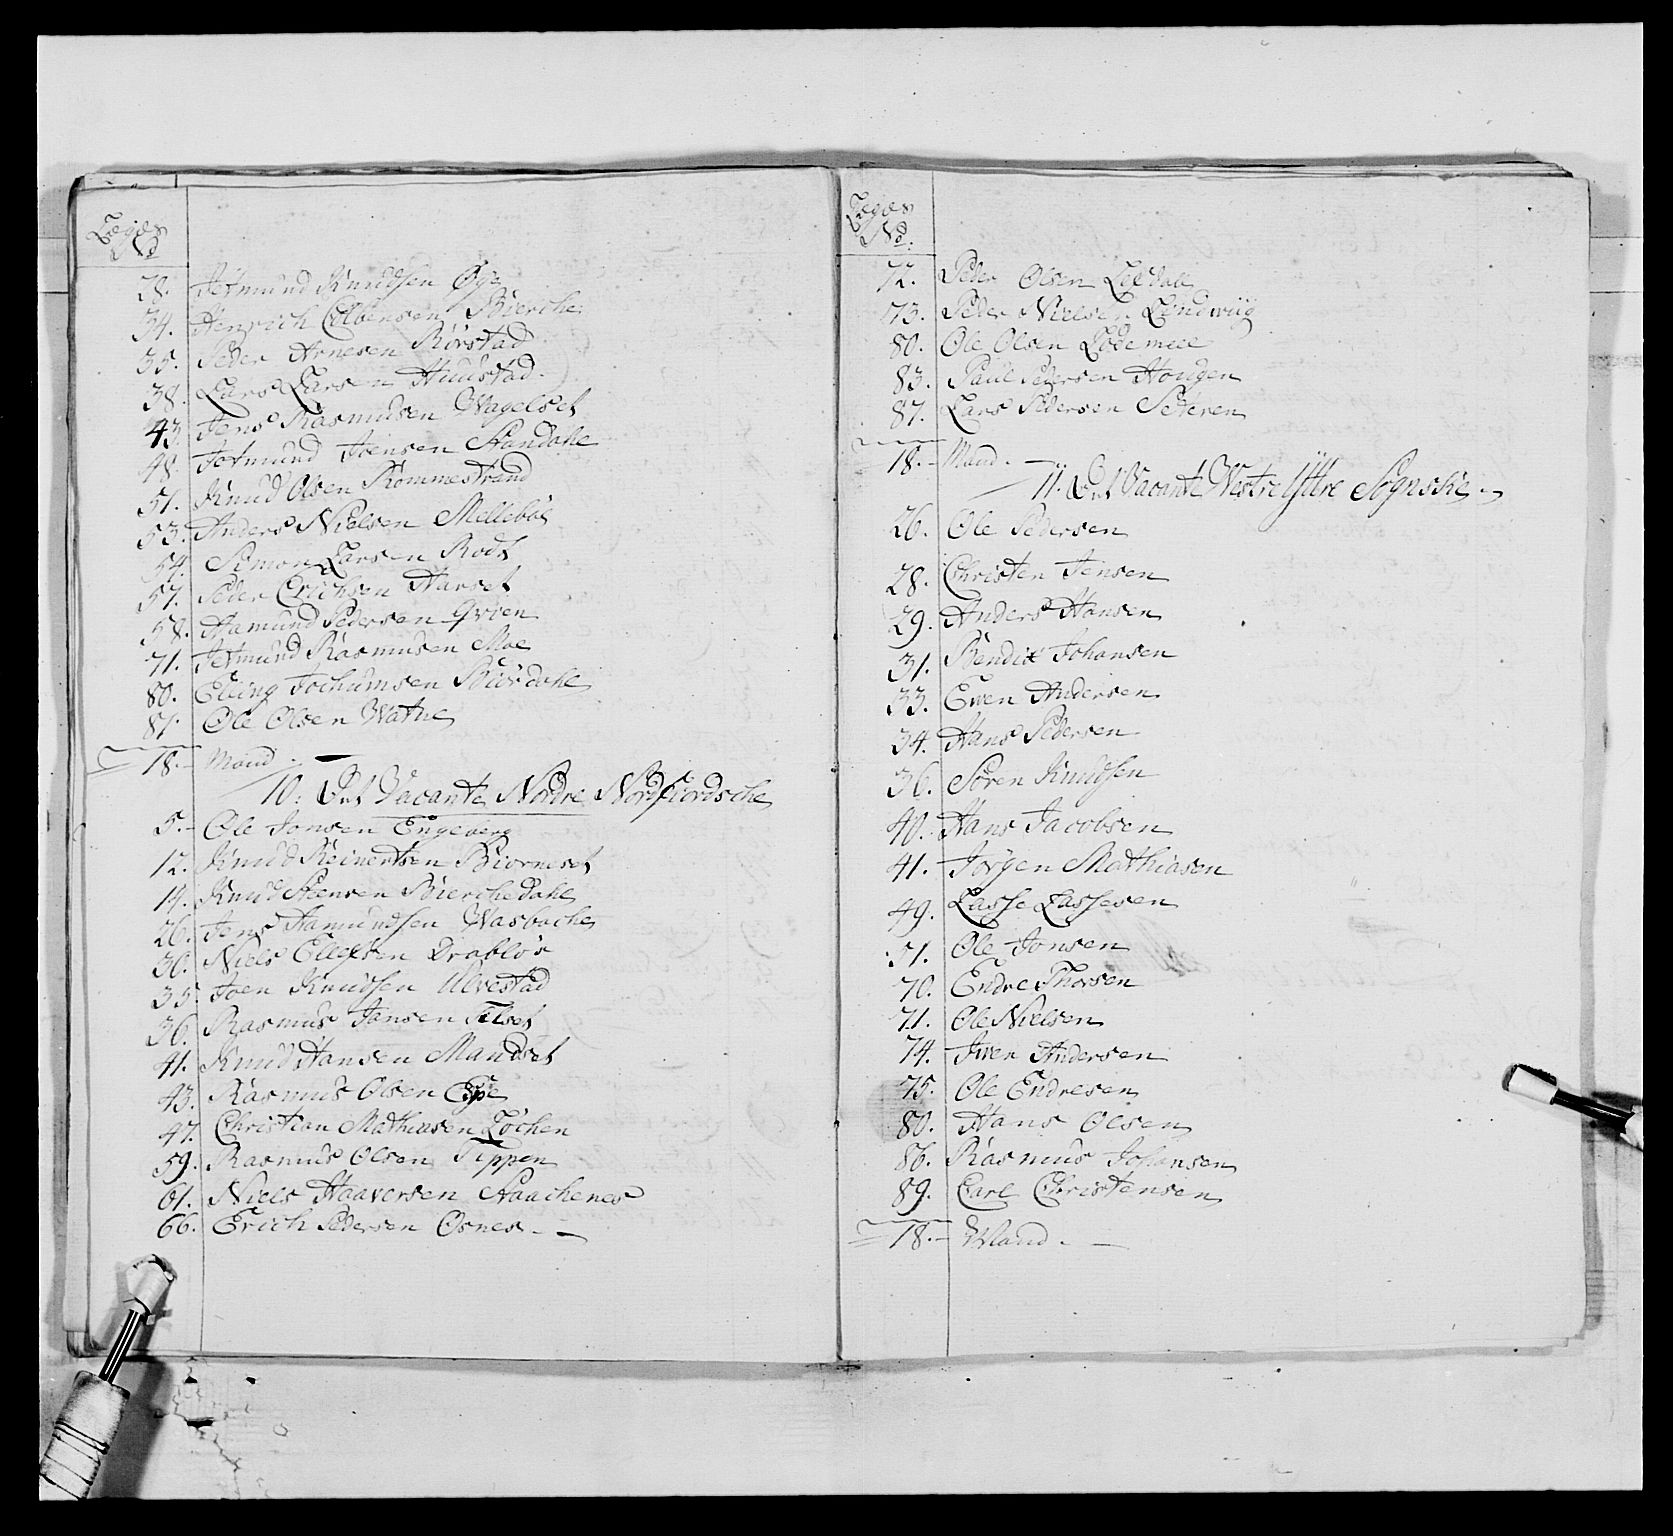 Lægdes
No
28. Jetmund Knudsen Øye
34. Henrich Colbensen Bierche
35. Peder Arnesen Rörstad
38. Lars Larsen Huustad
43. Jens Rasmusen Wagelset
48. Jetmund Joensen Standahl
51. Knud Olsen Rommestrand
53. Anders Nielsen Melleböe
54. Simon Larsen Rodt
57. Peder Erichsen Harset
58. Aamund Pedersen Qvien
71. Jetmund Rasmusen Moe
80. Elling Jochumsen Biördahl
81. Ole Olsen Watne
18. Mand
10. Det Vacante Nordre Nordfiordsche
5. Ole Jonsen Engeberg
12. Knud Reinertsen Biorneset
14. Knud Steensen Bierchedahl
26. Jens Aamundsen Wasbache
30. Niels Ellefsen Drablös
35. Joen Knudsen Ulvestad
36. Rasmus Jansen Tilset
41. Knud Hansen Mandset
43. Rasmus Olsen Espe
47. Christian Mathiasen Löchen
59. Rasmus Olsen Tippen
61. Niels Haaversen Staachenes
66. Erich Pedersen Osnes
Lægdes
No.
72. Peder Olsen Leedal
73. Peder Nielsen Lendwiig
80. Ole Olsen Lodemeel
83. Paul Pedersen Hougen
87. Lars Pedersen Seteren
18. Mand.
11. Det Vacante Westre Ÿttre Sognske
26. Ole Pedersen
28. Christen Jensen
29. Anders Hansen
31. Bendix Johansen
33. Ewen Andersen
34. Hans Pedersen
36. Sören Knudsen
40. Hans Jacobsen
41. Jörgen Mathiasen
49. Lasse Lassesen
51. Ole Jonsen
70. Endre Thorsen
71. Ole Nielsen
74. Iwen Andersen
75. Ole Endresen
80. Hans Olsen
86. Rasmus Johansen
89. Carl Christensen
18. Mand.